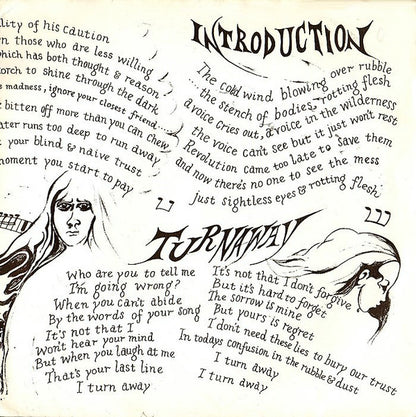 lity of his caution
n those who are less willing
which has both thought & reason
torch to shine through the dark
s madness, ignore your closest friend....
bitten off more than you can chew
ater runs too deep to run away
your blind & naive trust
moment you start to pay
INTRODUCTION
The cold wind blowing over rubble
...the stench of bodies, rotting flesh
a voice cries out, a voice in the wilderness
the voice can't see but it just won't rest
Revolution came too late to save them
and now there's no one to see the mess
just sightless eyes & rotting flesh,
TURNAWAY
Who are you to tell me
I'm going wrong?
When you can't abide
By the words of your song
It's not that I
Won't hear your mind
But when you laugh at me
That's your last line
I turn away
It's not that I don't forgive
But it's hard to forget
The sorrow is mine
But yours is regret
I don't need these lies to bury our trust
In todays confusion in the rubble & dust
I turn away
I turn away